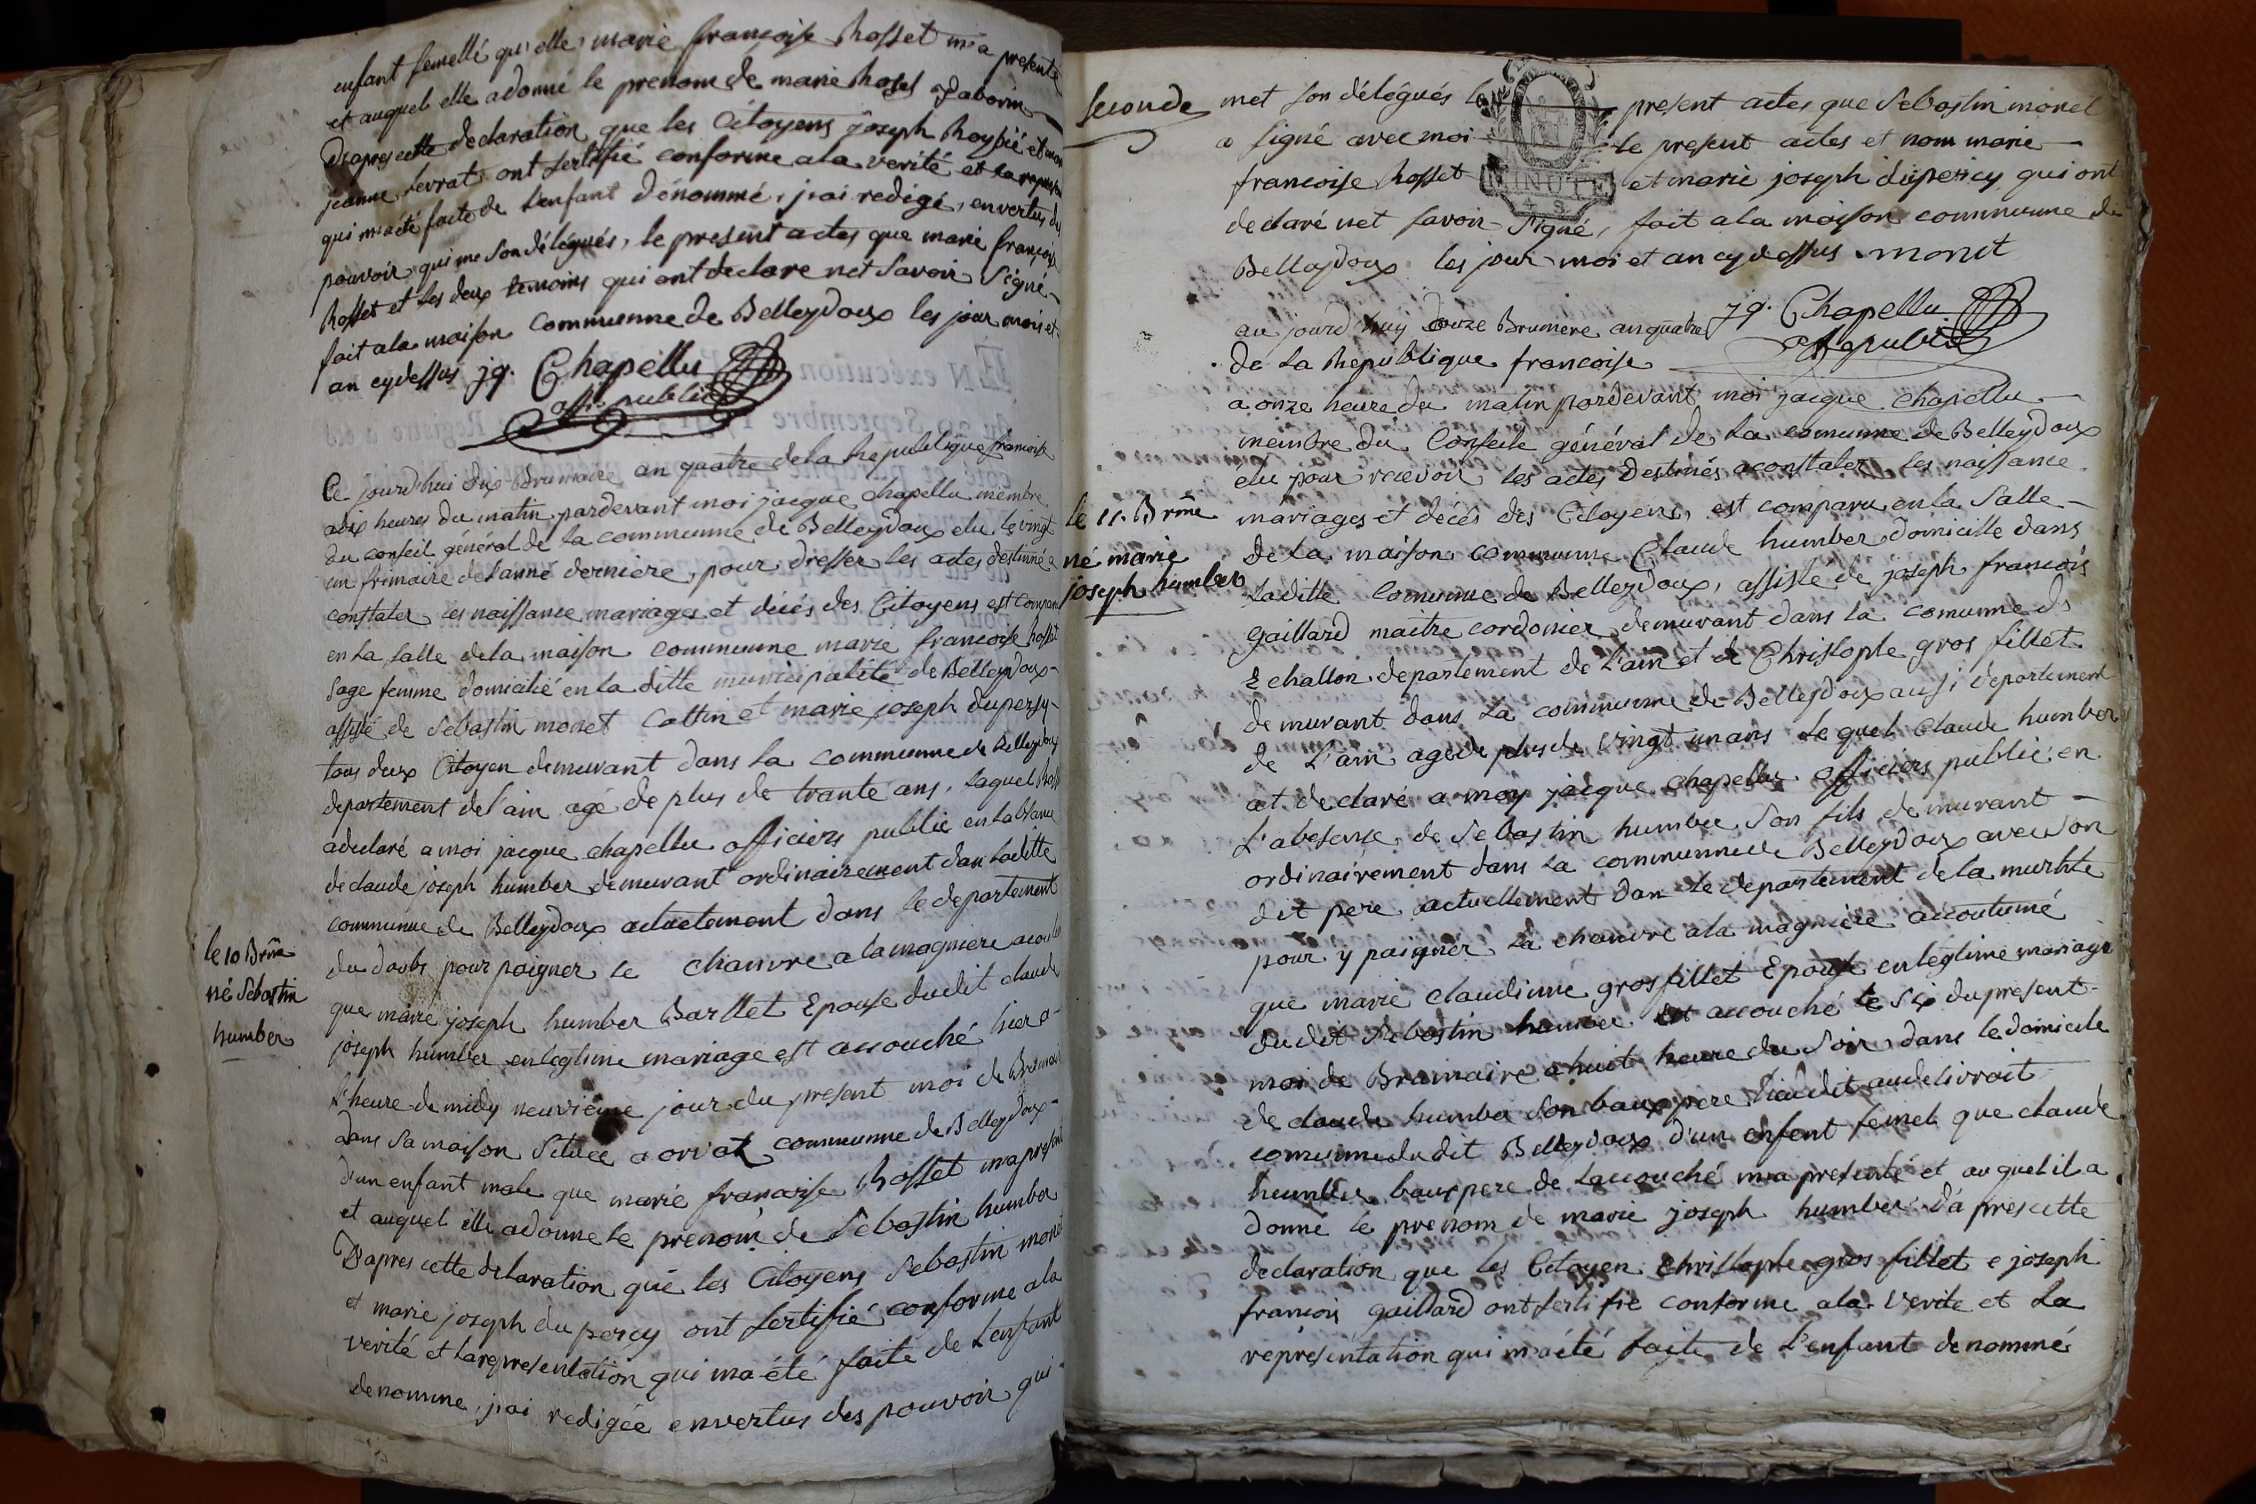 enfant femelle qu'elle marie françoise Rosset m'a presenté
et auquel elle a donné le prenom de marie
D'apres cette declaration que les Citoyens joseph et
jeanne ont sertifié conforme a la verité et la
qui m'a été faite de l'enfant dénommé, j'ai redigé, en vertus des
pouvoir qui me son délégués, le present actes que marie françoise
Rosset et les deux temoins qui ont declare net savoir signé
fait a la maison communne de Belleydoux les jour mois et
an cy dessus jq. Chapellu
offi. public
Ce jourd'hui dix Brumaire an quatre de la Republique francoise
a dix heures du matin pardevant moi jacque chapellu membre
du conseil général de la communne de Belleydoux elu le vingt
un frimaire de l'anné derniere, pour dresser les actes destinné a
constater les naissance mariages et décés des Citoyens est comparu
en la salle de la maison communne marie francoise Rosset
sage femme domicilié en la ditte municipalité de Belleydoux
assisté de Sebastin monet Cattin et marie joseph dupersy
tous deux Citoyen demeurant dans la communne de Belleydoux
departement de l'ain agé de plus de trante ans, laquel Rosset
a declaré a moi jacque chapellu officiers public en l'absance
de claude joseph humber demeurant ordinairement dan laditte
communne de Belleydoux actuelement dans le departement
du doubs pour paigner le chanvre a la magniere
que marie joseph humber Barllet Epouse dudit claude
joseph humber en legtime mariage est accouché hier a
l'heure de midy neuviéme jour du present moi de Brumair
dans sa maison située a orvaz communne de Belleydoux
d'un enfant male que marie francoise Rosset ma presenté
et auquel elle a donne le prenom de Sebastin humber
D'apres cette delaration que les Citoyens Sebastin monet
et marie joseph du percy ont sertifié conforme a la
verité et la representation qui ma été faite de l'enfant
denomme, j'ai redigée en vertus des pouvoir qui
le 10 Brme
né Sebastin
humber
seconde
met son délégués le present actes que Sebastin monet
a signé avec moi le present actes et nom marie
francoise Rosset et marie joseph dupercy qui ont
MINUTE
declaré net savoir signé, fait a la maison communne de
Belleydoux les jour moi et an cy dessus monet
jq. Chapellu
au jourd'huy douze Brumere an quatre
de la Republique francoise
a onze heure du matin pardevant moi jacque chapellu
membre du Conseile général de la comunne de Belleydoux
élu pour recevoir les actes destinés a constater les naissance
mariages et décés des Citoyens, est comparu en la Salle
de la maison communne Claude humber domicille dans
ladille comunne de Belleydoux, assisté de joseph francois
gaillard maitre cordonier demurant dans la comunne de
Echallon departement de l'ain et de Christople gros fillet
demurant dans la communne de Belleydoux aussi departement
de l'ain agé de plus de vingt un ans lequel Claude humber
at declaré a moy jacque chapellu officiers public en
l'absense de Sebastin humber son fils demurant
ordinairement dans la communne de Belleydoux avec son
dit pere actuellement dan le departement de la murhte
pour y paigner la chanvre a la magniere accoutumé
que marie claudinne gros fillet Epouse en legtime mariage
dudit Sebastin humber est accouché le six du present
moi de Brumaire a huit heure du soir dans le domicile
de claude humber son beaupere liaudit audelivroit
comunne dudit Belleydoux d'un enfent femel que claude
humber beaupere de laccouché m'a presenté et auquel il a
donné le prenom de marie joseph humber d'apres cette
declaration que les Citoyen Christophe gros fillet e joseph
francois gaillard ont sertifié conforme a la verite et la
representation qui m'a été faite de l'enfant denommé
le 11. Brme
né marie
joseph humber